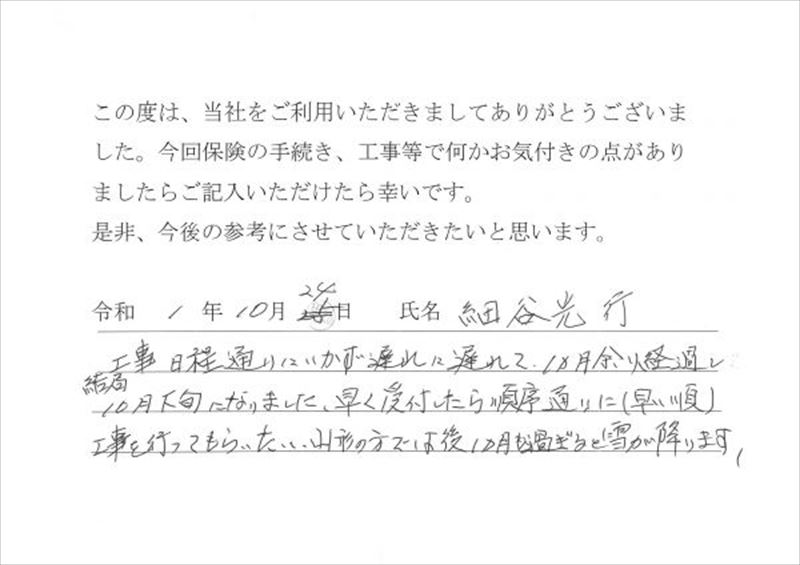 この度は、当社をご利用いただきましてありがとうございま
した。今回保険の手続き、工事等で何かお気付きの点があり
ましたらご記入いただけたら幸いです。
是非、今後の参考にさせていただきたいと思います。
令和 1 年 10月 24日 氏名 細谷光行
工事日程通りにいかず遅れに遅れて、10月余り経過し
結局
10月下旬になりました、早く受付したら順序通りに(早い順)
工事を行ってもらいたい、山形の方では後10月も過ぎると雪が降ります、